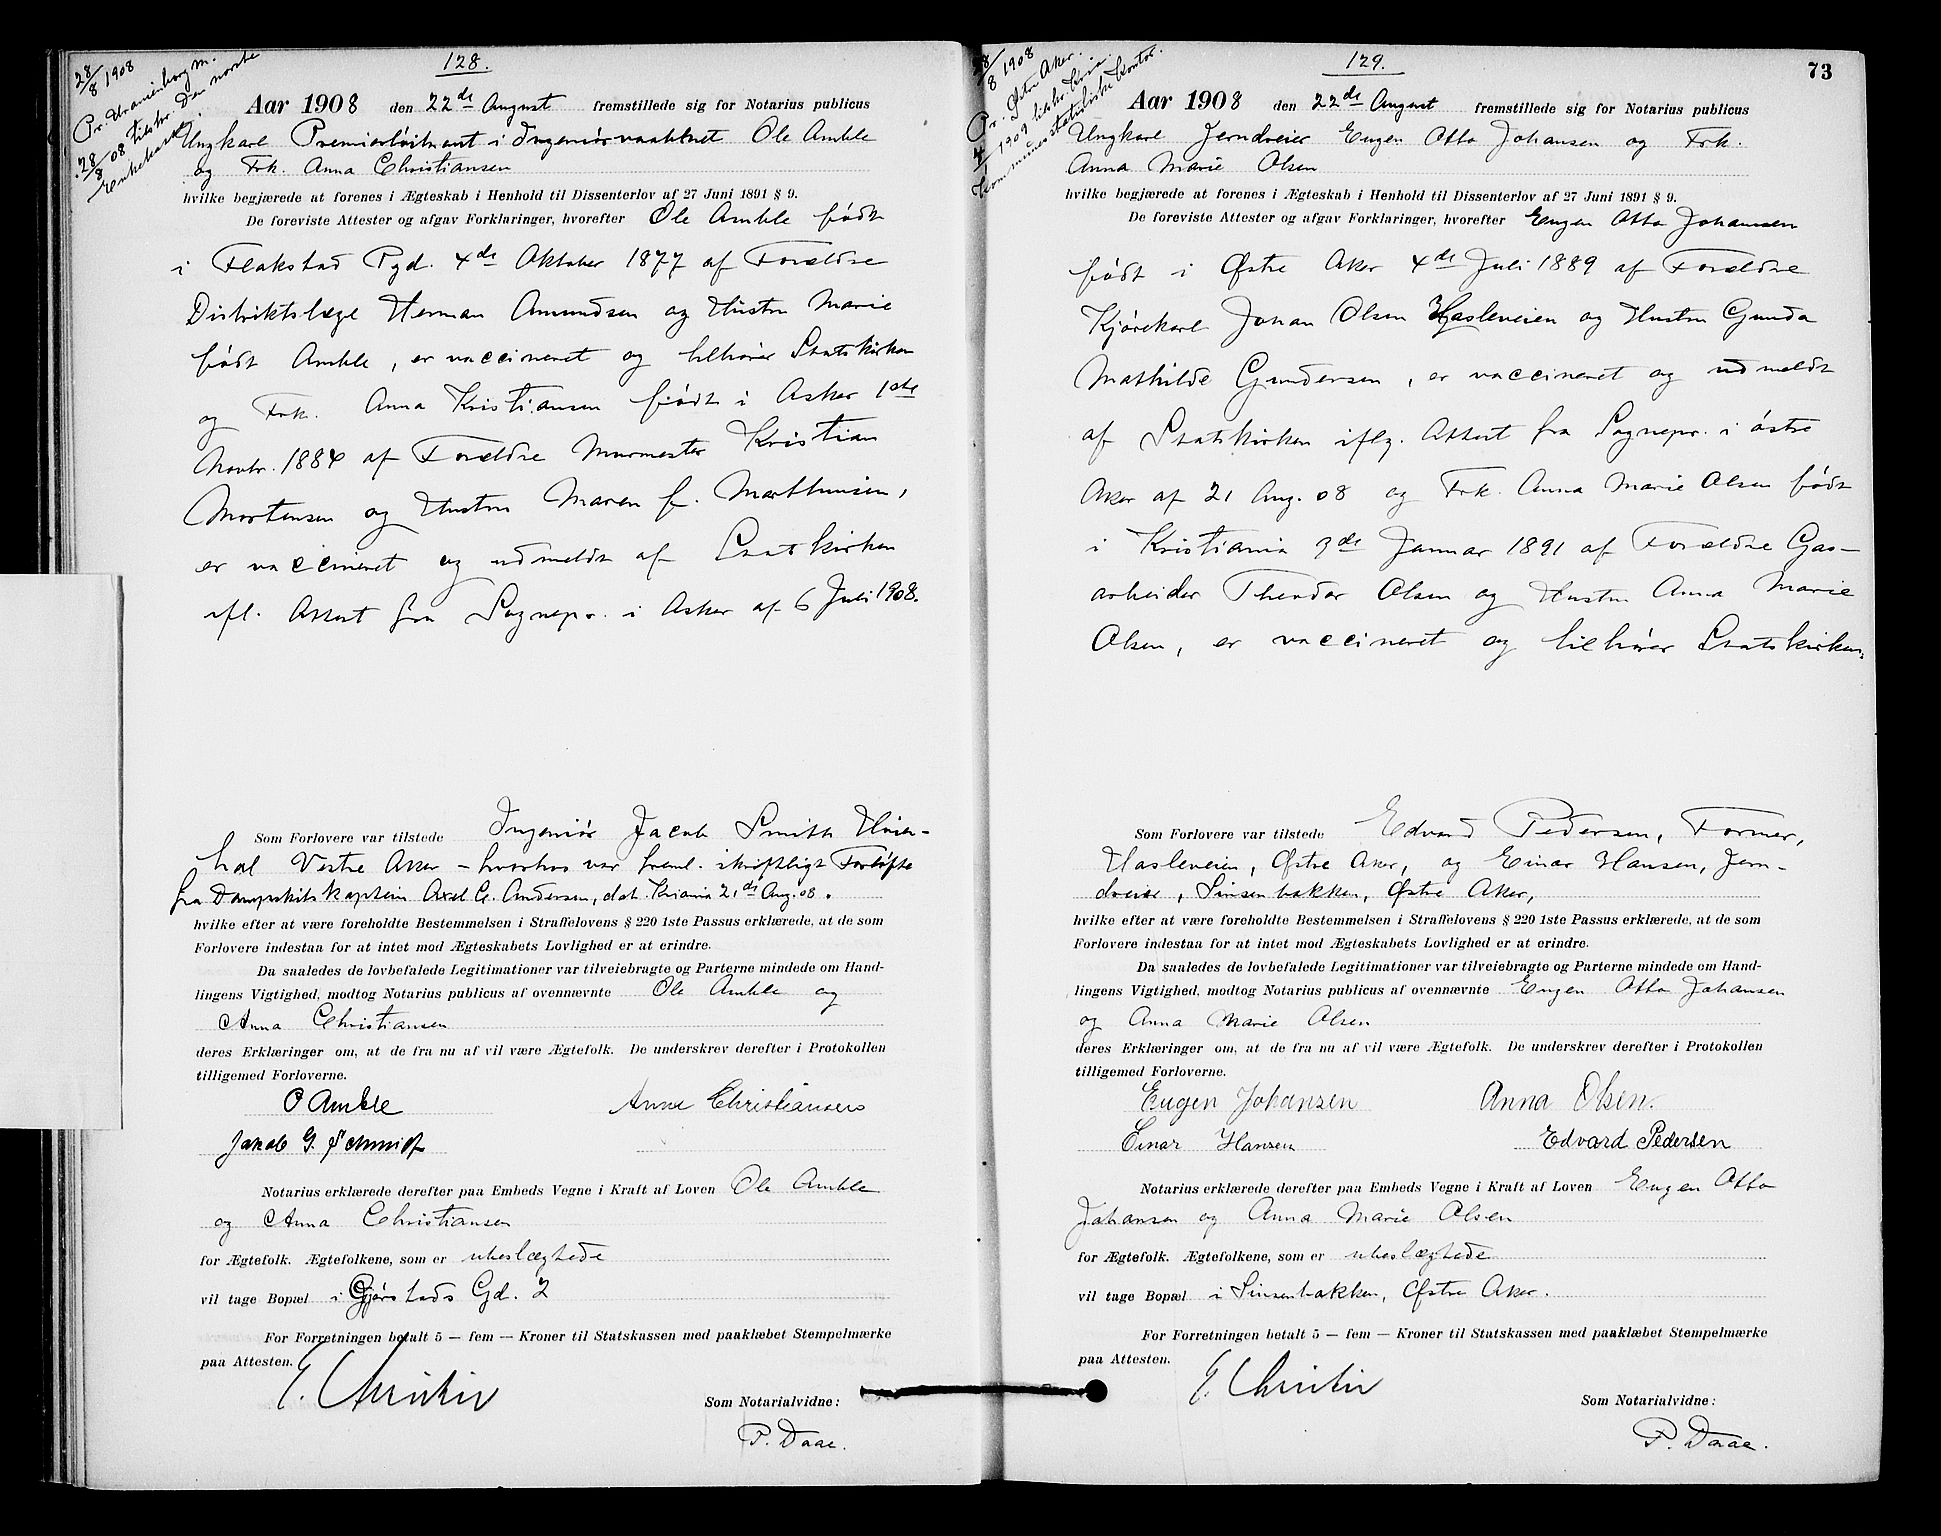 128.
28/8 1908
Pr. Uranienborg m.
28/8 08 tilstr. Den norske
Enkekasse.
Aar 1908 den 22de August fremstillede sig for Notarius publicus
Ungkarl Premierløitnant i Ingeniørvaabnet Ole Amble
og Frk. Anna Christiansen
hvilke begjærede at forenes i Ægteskab i Henhold til Dissenterlov af 27 Juni 1891 § 9.
De foreviste Attester og afgav Forklaringer, hvorefter Ole Amble født
i Flakstad Pgd. 4de Oktober 1877 af Forældre
Distriktslæge Herman Amundsen og Hustru Marie
født Amble, er vaccineret og tilhører Statskirken
og Frk. Anna Kristiansen født i Asker 1ste
Novbr. 1884 af Forældre Murmester Kristian
Mortensen og Hustru Maren f. Marthinsen,
er vaccineret og udmeldt af Statskirken
ifl. Attest fra Sognepr. i Asker af 6 Juli 1908.
Som Forlovere var tilstede Ingeniør Jacob Smith Hvier-
hal Vestre Aker – hvorhos var freml. skriftligt Forløfte
fra Dampskibskaptein Axel C. Andersen, dat. Kr.ania 21de Aug. 08.
hvilke efter at være foreholdte Bestemmelsen i Straffelovens § 220 1ste Passus erklærede, at de som
Forlovere indestaa for at intet mod Ægteskabets Lovlighed er at erindre.
Da saaledes de lovbefalede Legitimationer var tilveiebragte og Parterne mindede om Hand-
lingens Vigtighed, modtog Notarius publicus af ovennævnte Ole Amble og
Anna Christiansen
deres Erklæringer om, at de fra nu af vil være Ægtefolk. De underskrev derefter i Protokollen
tilligemed Forloverne.
O Amble Anna Christiansen
Jakob G. Schmidt
Notarius erklærede derefter paa Embeds Vegne i Kraft af Loven Ole Amble
og Anna Christiansen
for Ægtefolk. Ægtefolkene, som er ubeslægtede
vil tage Bopæl i Gjørstads Gd. 2
For Forretningen betalt 5 — fem — Kroner til Statskassen med paaklæbet Stempelmærke
paa Attesten.
E. Christie
Som Notarialvidne:
P. Daae.
129.
73
28/8 1908
Pr. Østre Aker.
4/ 1909 tilstr. Kria.
Kommunes statistiske Kontor.
Aar 1908 den 22de August fremstillede sig for Notarius publicus
Ungkarl Jerndreier Eugen Otto Johansen og Frk.
Anna Marie Olsen
hvilke begjærede at forenes i Ægteskab i Henhold til Dissenterlov af 27 Juni 1891 § 9.
De foreviste Attester og afgav Forklaringer, hvorefter Eugen Otto Johansen
født i Østre Aker 4de Juli 1889 af Forældre
Kjørekarl Johan Olsen Hasleveien og Hustru Gunda
Mathilde Gundersen, er vaccineret og udmeldt
af Statskirken iflg. Attest fra Sognepr. i østre
Aker af 21 Aug. 08 og Frk. Anna Marie Olsen født
i Kristiania 3de Januar 1891 af Forældre Gas-
arbeider Theodor Olsen og Hustru Anna Marie
Olsen, er vaccineret og tilhører Statskirken.
Som Forlovere var tilstede Edvard Pedersen, Former,
Hasleveien, Østre Aker, og Einar Hansen, Jern-
dreier, Sinsenbakken, Østre Aker,
hvilke efter at være foreholdte Bestemmelsen i Straffelovens § 220 1ste Passus erklærede, at de som
Forlovere indestaa for at intet mod Ægteskabets Lovlighed er at erindre.
Da saaledes de lovbefalede Legitimationer var tilveiebragte og Parterne mindede om Hand-
lingens Vigtighed, modtog Notarius publicus af ovennævnte Eugen Otto Johansen
og Anna Marie Olsen
deres Erklæringer om, at de fra nu af vil være Ægtefolk. De underskrev derefter i Protokollen
tilligemed Forloverne.
Eugen Johansen Anna Olsen.
Einar Hansen Edvard Pedersen
Notarius erklærede derefter paa Embeds Vegne i Kraft af Loven Eugen Otto
Johansen og Anna Marie Olsen
for Ægtefolk. Ægtefolkene, som er ubeslægtede
vil tage Bopæl i Sinsenbakken, Østre Aker.
For Forretningen betalt 5 — fem — Kroner til Statskassen med paaklæbet Stempelmærke
paa Attesten.
E. Christie
Som Notarialvidne:
P. Daae.